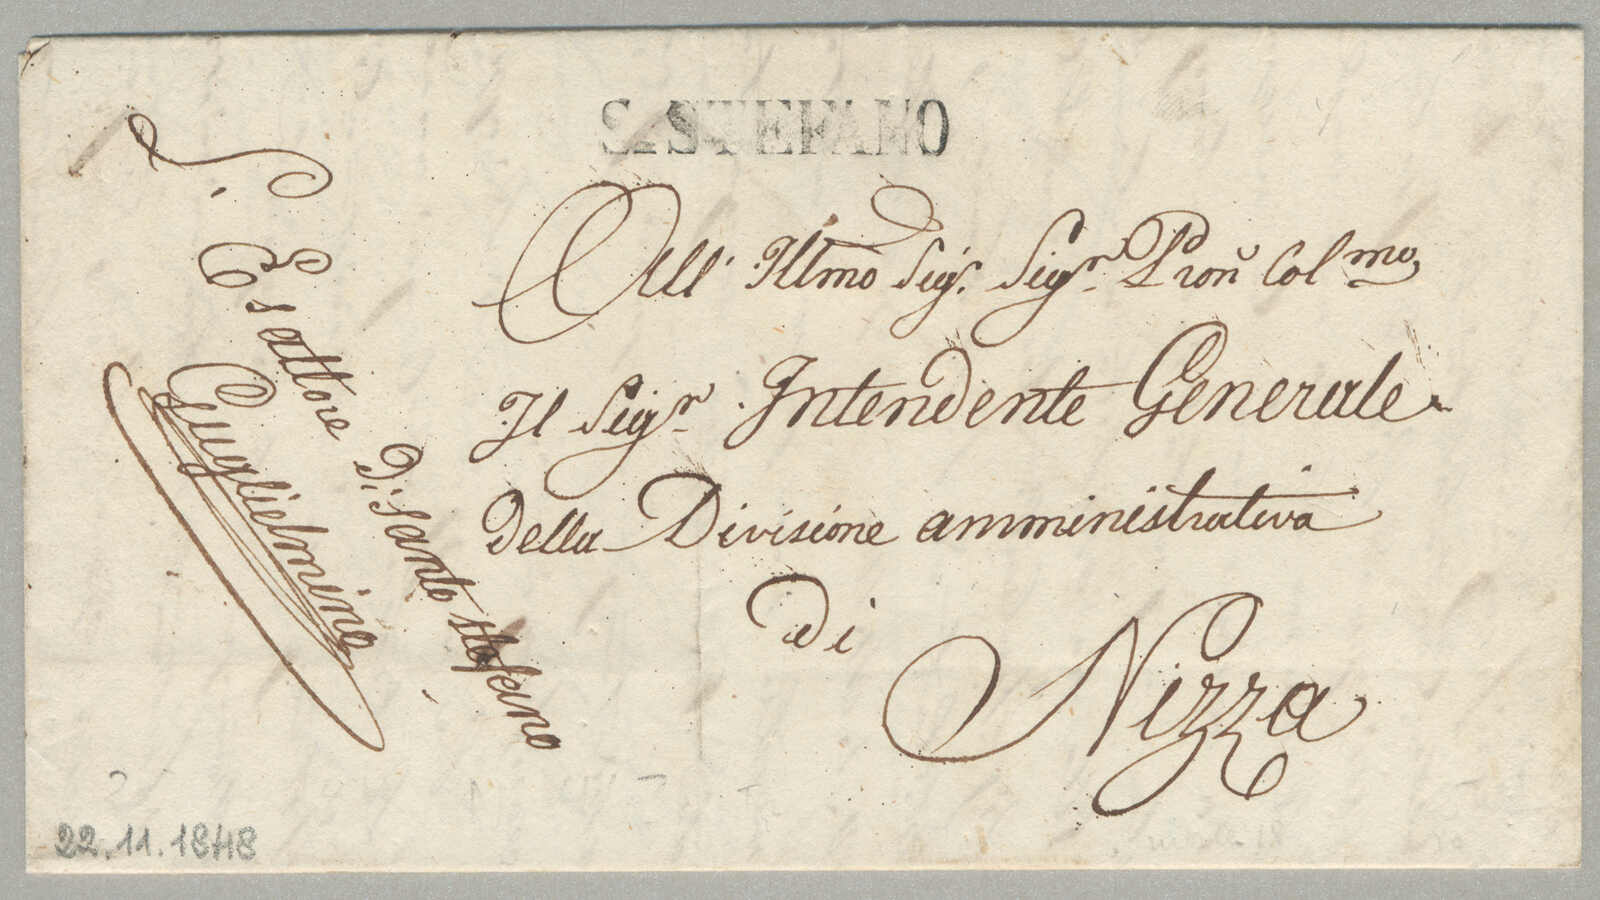 S. STEFANO
All' Illmo Sigr. Sigr. Pron Colmo,
Il Sigr. Intendente Generale
della Divisione amministrativa
di
Nizza
L'Esattore di Santo Stefano
Guglielmino
22.11.1848